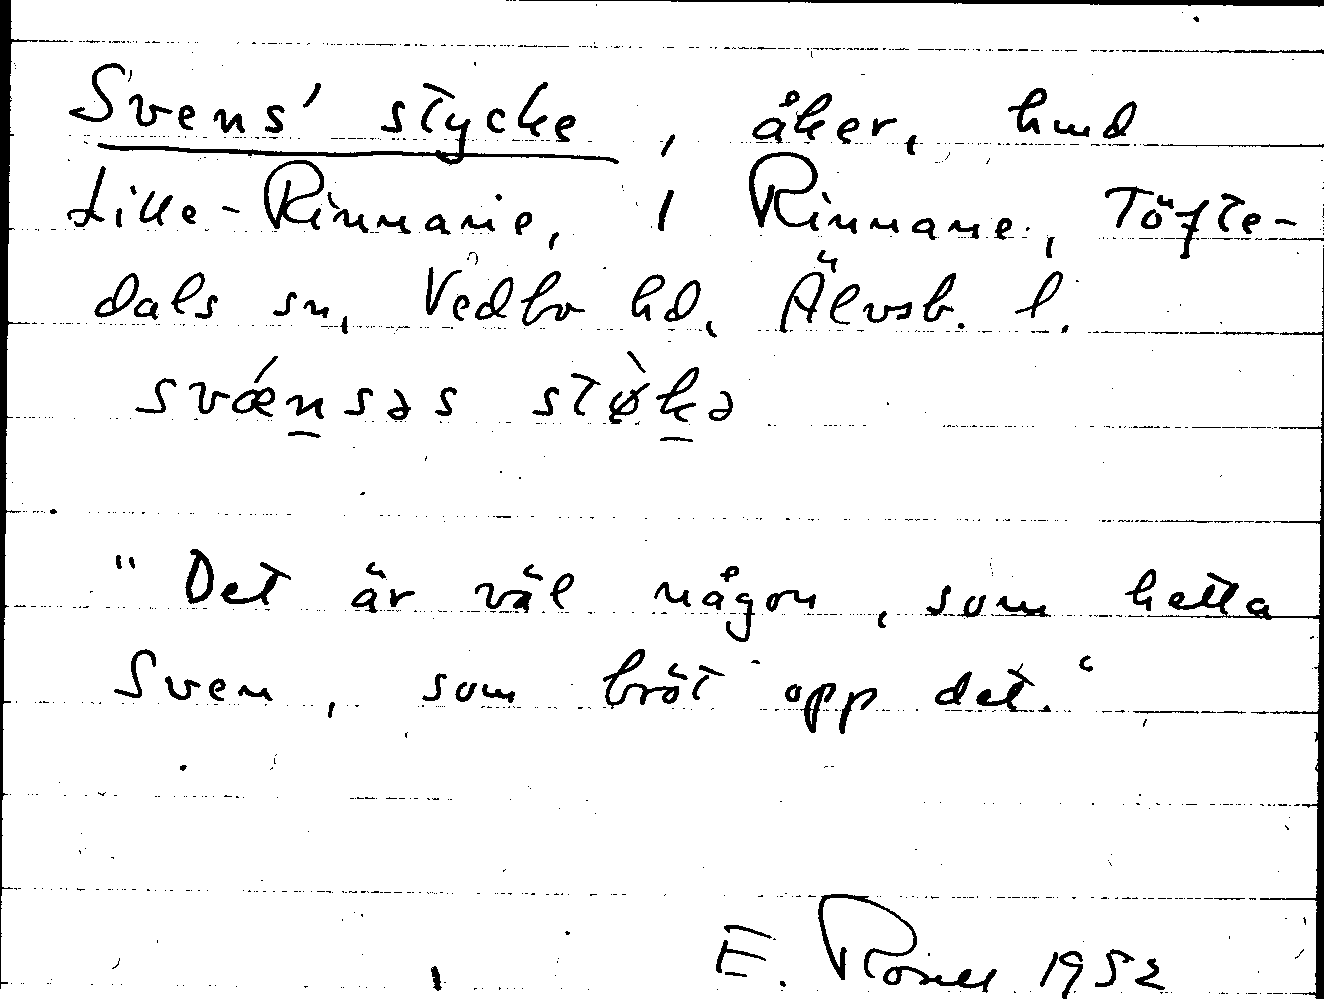 Svens' stycke, åker, hmd
Lille-Rinnane, 1 Rinnane, Töfte-
dals sn, Vedbo hd, Älvsb. l.
svǽnsəs stø̀kə
"Det är väl någon, som hetta
Sven, som bröt opp det."
E. Rosell 1952